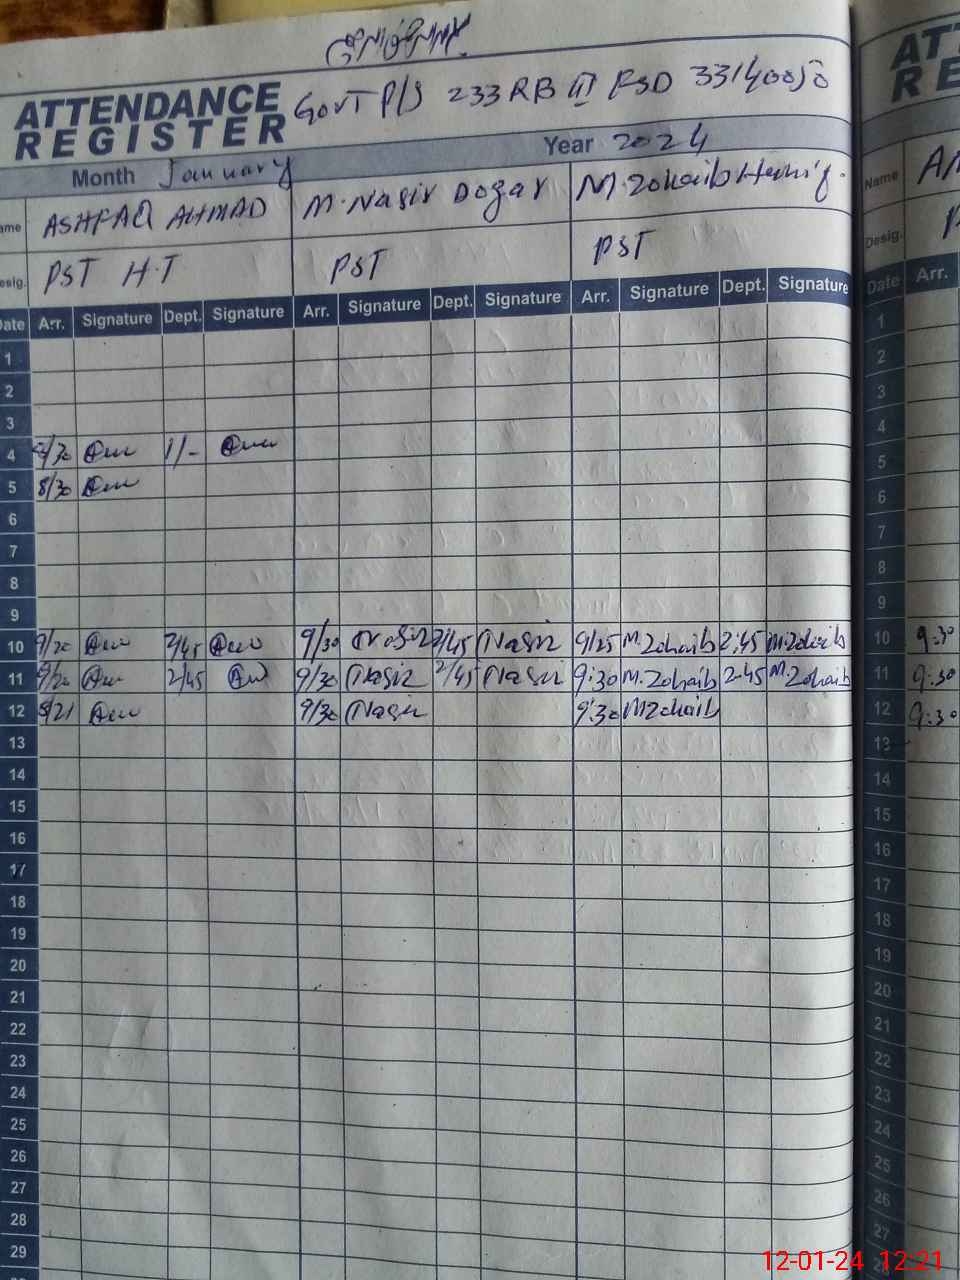 ATTENDANCE REGISTER
GOVT P/S 233 RB II FSD 33140050
Month January Year 2024
ASHFAQ AHMAD M. Nasir Dogar M. Zohaib
Desig. PST H.T PST PST
Date Arr. Signature Dept. Signature Arr. Signature Dept. Signature Arr. Signature Dept. Signature
1
2
3
4 8/30 1/-
5 8/30
6
7
8
9
10 9/20 2/45 9/30 Nasir 2/45 Nasir 9/25 M.Zohaib 2:45 M.Zohaib
11 9/20 2/45 9/30 Nasir 2/45 Nasir 9:30 M.Zohaib 2:45 M.Zohaib
12 8/21 9/30 Nasir 9:30 M Zohaib
13
14
15
16
17
18
19
20
21
22
23
24
25
26
27
28
29
Name
Desig.
Date Arr.
1
2
3
4
5
6
7
8
9
10 9:30
11 9:30
12 9:30
13
14
15
16
17
18
19
20
21
22
23
24
25
26
27
12-01-24 12:21